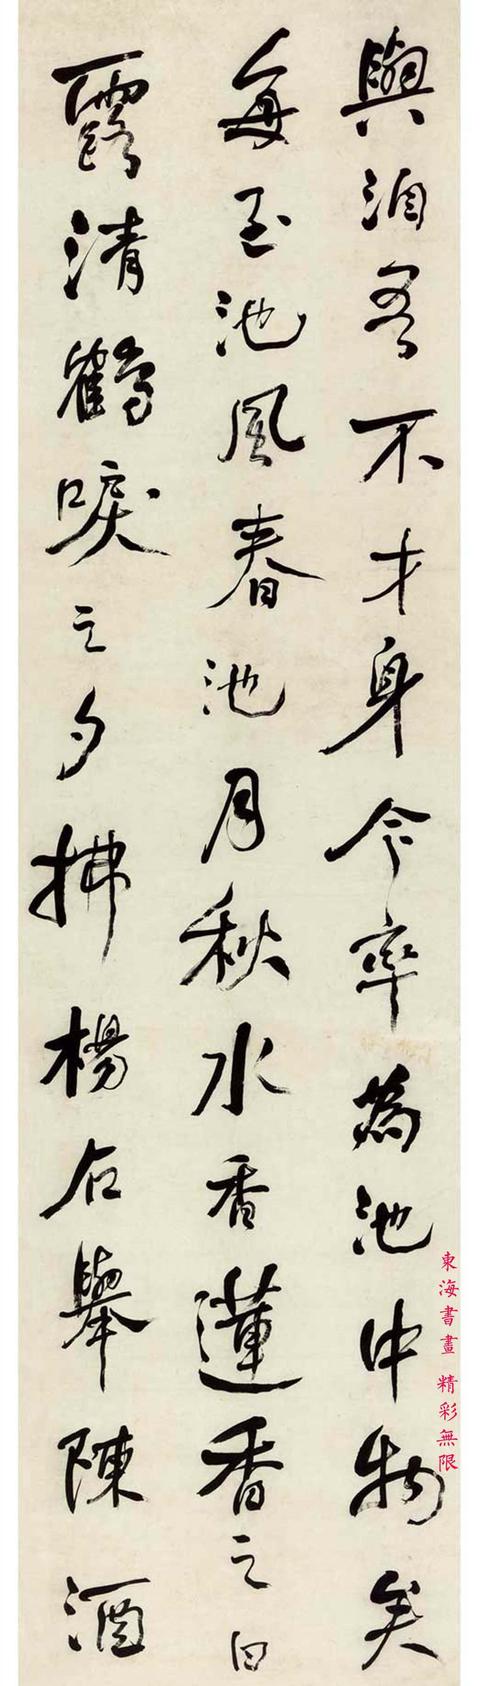 與洎吾不才身今率為池中物矣
每至池風春池月秋水香蓮香之旦
露清鶴唳之夕拂楊石舉陳酒
東海書畫 精彩無限